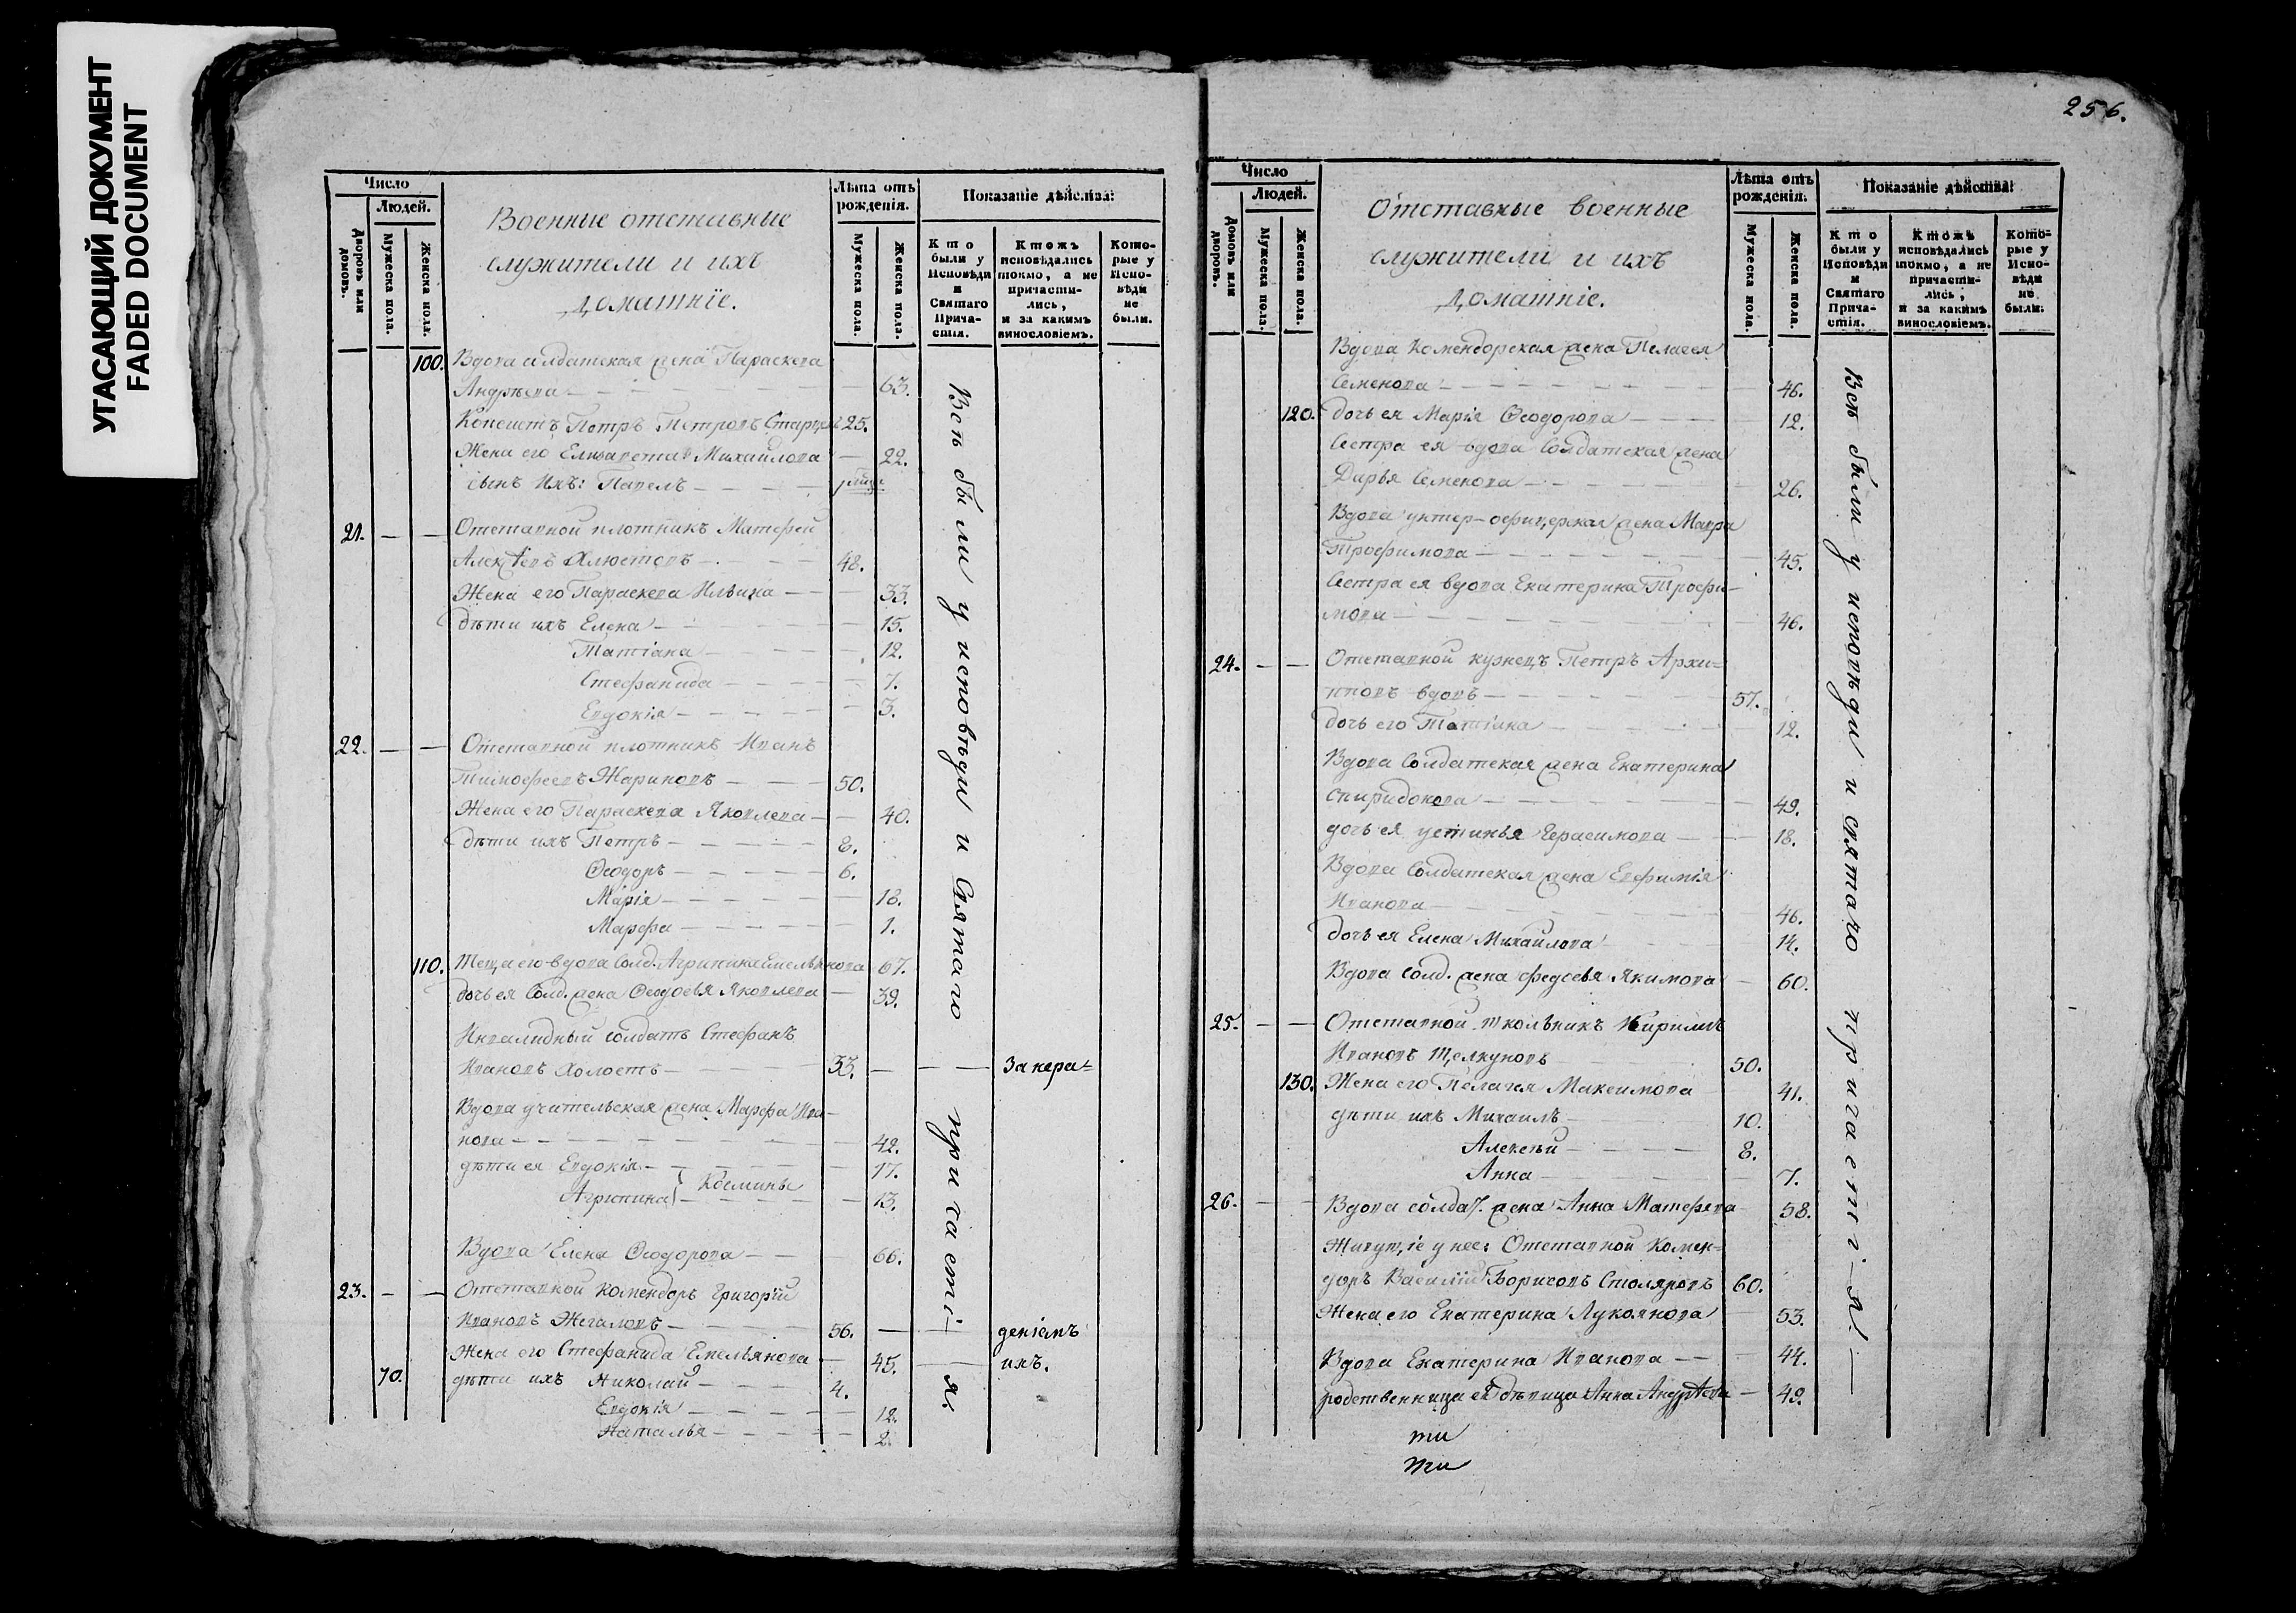 УГАСАЮЩИЙ ДОКУМЕНТ
FADED DOCUMENT
Число
Людей.
Дворовъ или домовъ.
Мужеска пола.
Женска пола.
Военные отставные
служители и ихъ
домашнїе.
Лѣта отъ рожденїя.
Мужеска пола.
Женска пола.
Показанїе дѣйства:
Кто были у Исповѣди и Святаго Прича- стїя.
Ктожъ исповѣдались токмо, а не причасти- лись, и за какимъ винословїемъ.
Кото- рые у Испо- вѣди не были.
100. Вдова солдатская жена Параскева
Андрѣева 63.
Копеистъ Петръ Петровъ 25.
Жена его Елисавета Михайлова 22.
сынъ ихъ: Павелъ
21. Отставной плотникъ Матфей
48.
Жена его Параскева Ильина 33.
дѣти ихъ Елена 15.
Татїана 12.
Стефанида 7.
Евдокїя 3.
22. Отставной плотникъ Иванъ
Тимофеевъ Жариновъ 50.
Жена его Параскева Яковлева 40.
дѣти ихъ Петръ 8.
Ѳеодоръ 6.
Марїя 18.
Марфа 1.
110. Теща его вдова Солд. Агрипина Емельянова 67.
дочь ея Солд. жена Ѳеодосья Яковлева 39.
Инвалидный солдатъ Стефанъ
Ивановъ Холостъ 33. За нера=
Вдова учительская жена Марфа Ива-
нова 42.
дѣти ея Евдокїя 17.
Агрипина Космины 13.
Вдова Елена Ѳеодорова 66.
23. Отставной Комендоръ Григорїй
Ивановъ Жегаловъ 56. денїемъ
Жена его Стефанида Емельянова 45. ихъ.
70. дѣти ихъ Николай 4.
Евдокїя 12.
Наталья 2.
Всѣ были у исповѣди и Святаго причастї-я.
256.
Число
Людей.
Домовъ или дворовъ.
Мужеска пола.
Женска пола.
Отставные военные
служители и ихъ
домашнїе.
Лѣта отъ рожденїя.
Мужеска пола.
Женска пола.
Показанїе дѣйства:
Кто были у Исповѣди и Святаго Прича- стїя.
Ктожъ исповѣдались токмо, а не причасти- лись, и за какимъ винословїемъ.
Кото- рые у Испо- вѣди не были.
Вдова Комендорская жена Пелагея
Семенова 46.
120. дочь ея Марїя Ѳеодорова 12.
Сестра ея вдова Солдатская жена
Дарья Семенова 26.
Вдова унтер-офицерская жена Мавра
Трофимова 45.
Сестра ея вдова Екатерина Трофи-
мова 46.
24. Отставной кузнецъ Петръ Архи=
повъ вдовъ 57.
дочь его Татїана 12.
Вдова Солдатская жена Екатерина
Спиридонова 49.
дочь ея устинья Герасимова 18.
Вдова Солдатская жена Евфимїя
Иванова 46.
дочь ея Елена Михайлова 14.
Вдова Солд. жена федосья Якимова 60.
25. Отставной школьникъ Кирилъ
Ивановъ Щелкуновъ 50.
130. Жена его Пелагея Максимова 41.
дѣти ихъ Михаилъ 10.
Алексѣй 8.
Анна 7.
26. Вдова солдат. жена Анна Матфеева 58.
Живущїе у нее: Отставной Комен=
доръ Василїй Борисовъ Столяровъ 60.
Жена его Екатерина Лукоянова 53.
Вдова Екатерина Иванова 44.
родственница ея дѣвица Анна Андрѣева 49.
ти
ти
Всѣ были у исповѣди и святаго причастї-я.